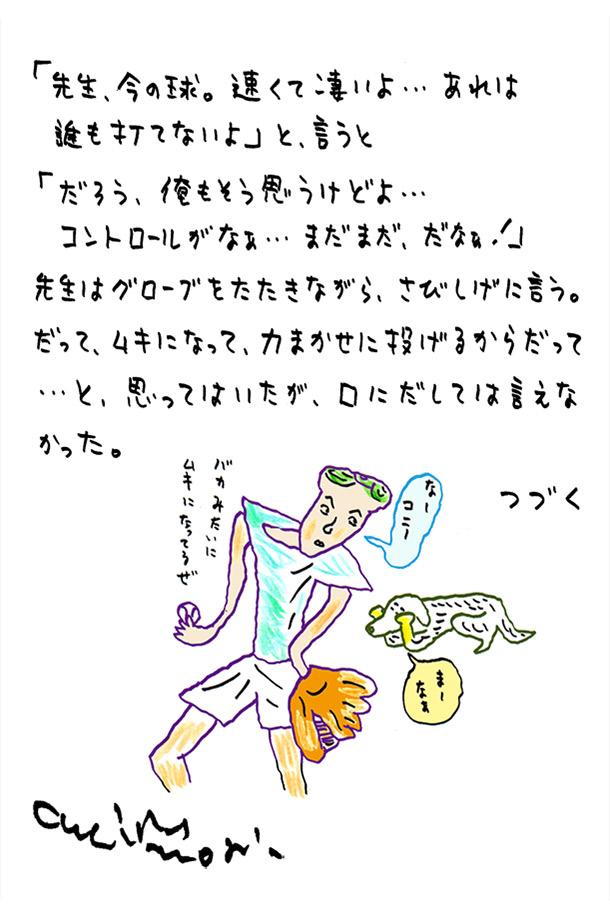 「先生、今の球。速くて凄いよ… あれは
誰も打てないよ」と、言うと
「だろう、俺もそう思うけどよ…
コントロールがなぁ… まだまだ、だなぁ!」
先生はグローブをたたきながら、さびしげに言う。
だって、ムキになって、力まかせに投げるからだって
…と、思ってはいたが、口にだしては言えな
かった。
つづく
バカみたいに
ムキになってるぜ
なー
コニー
まー
なぁ